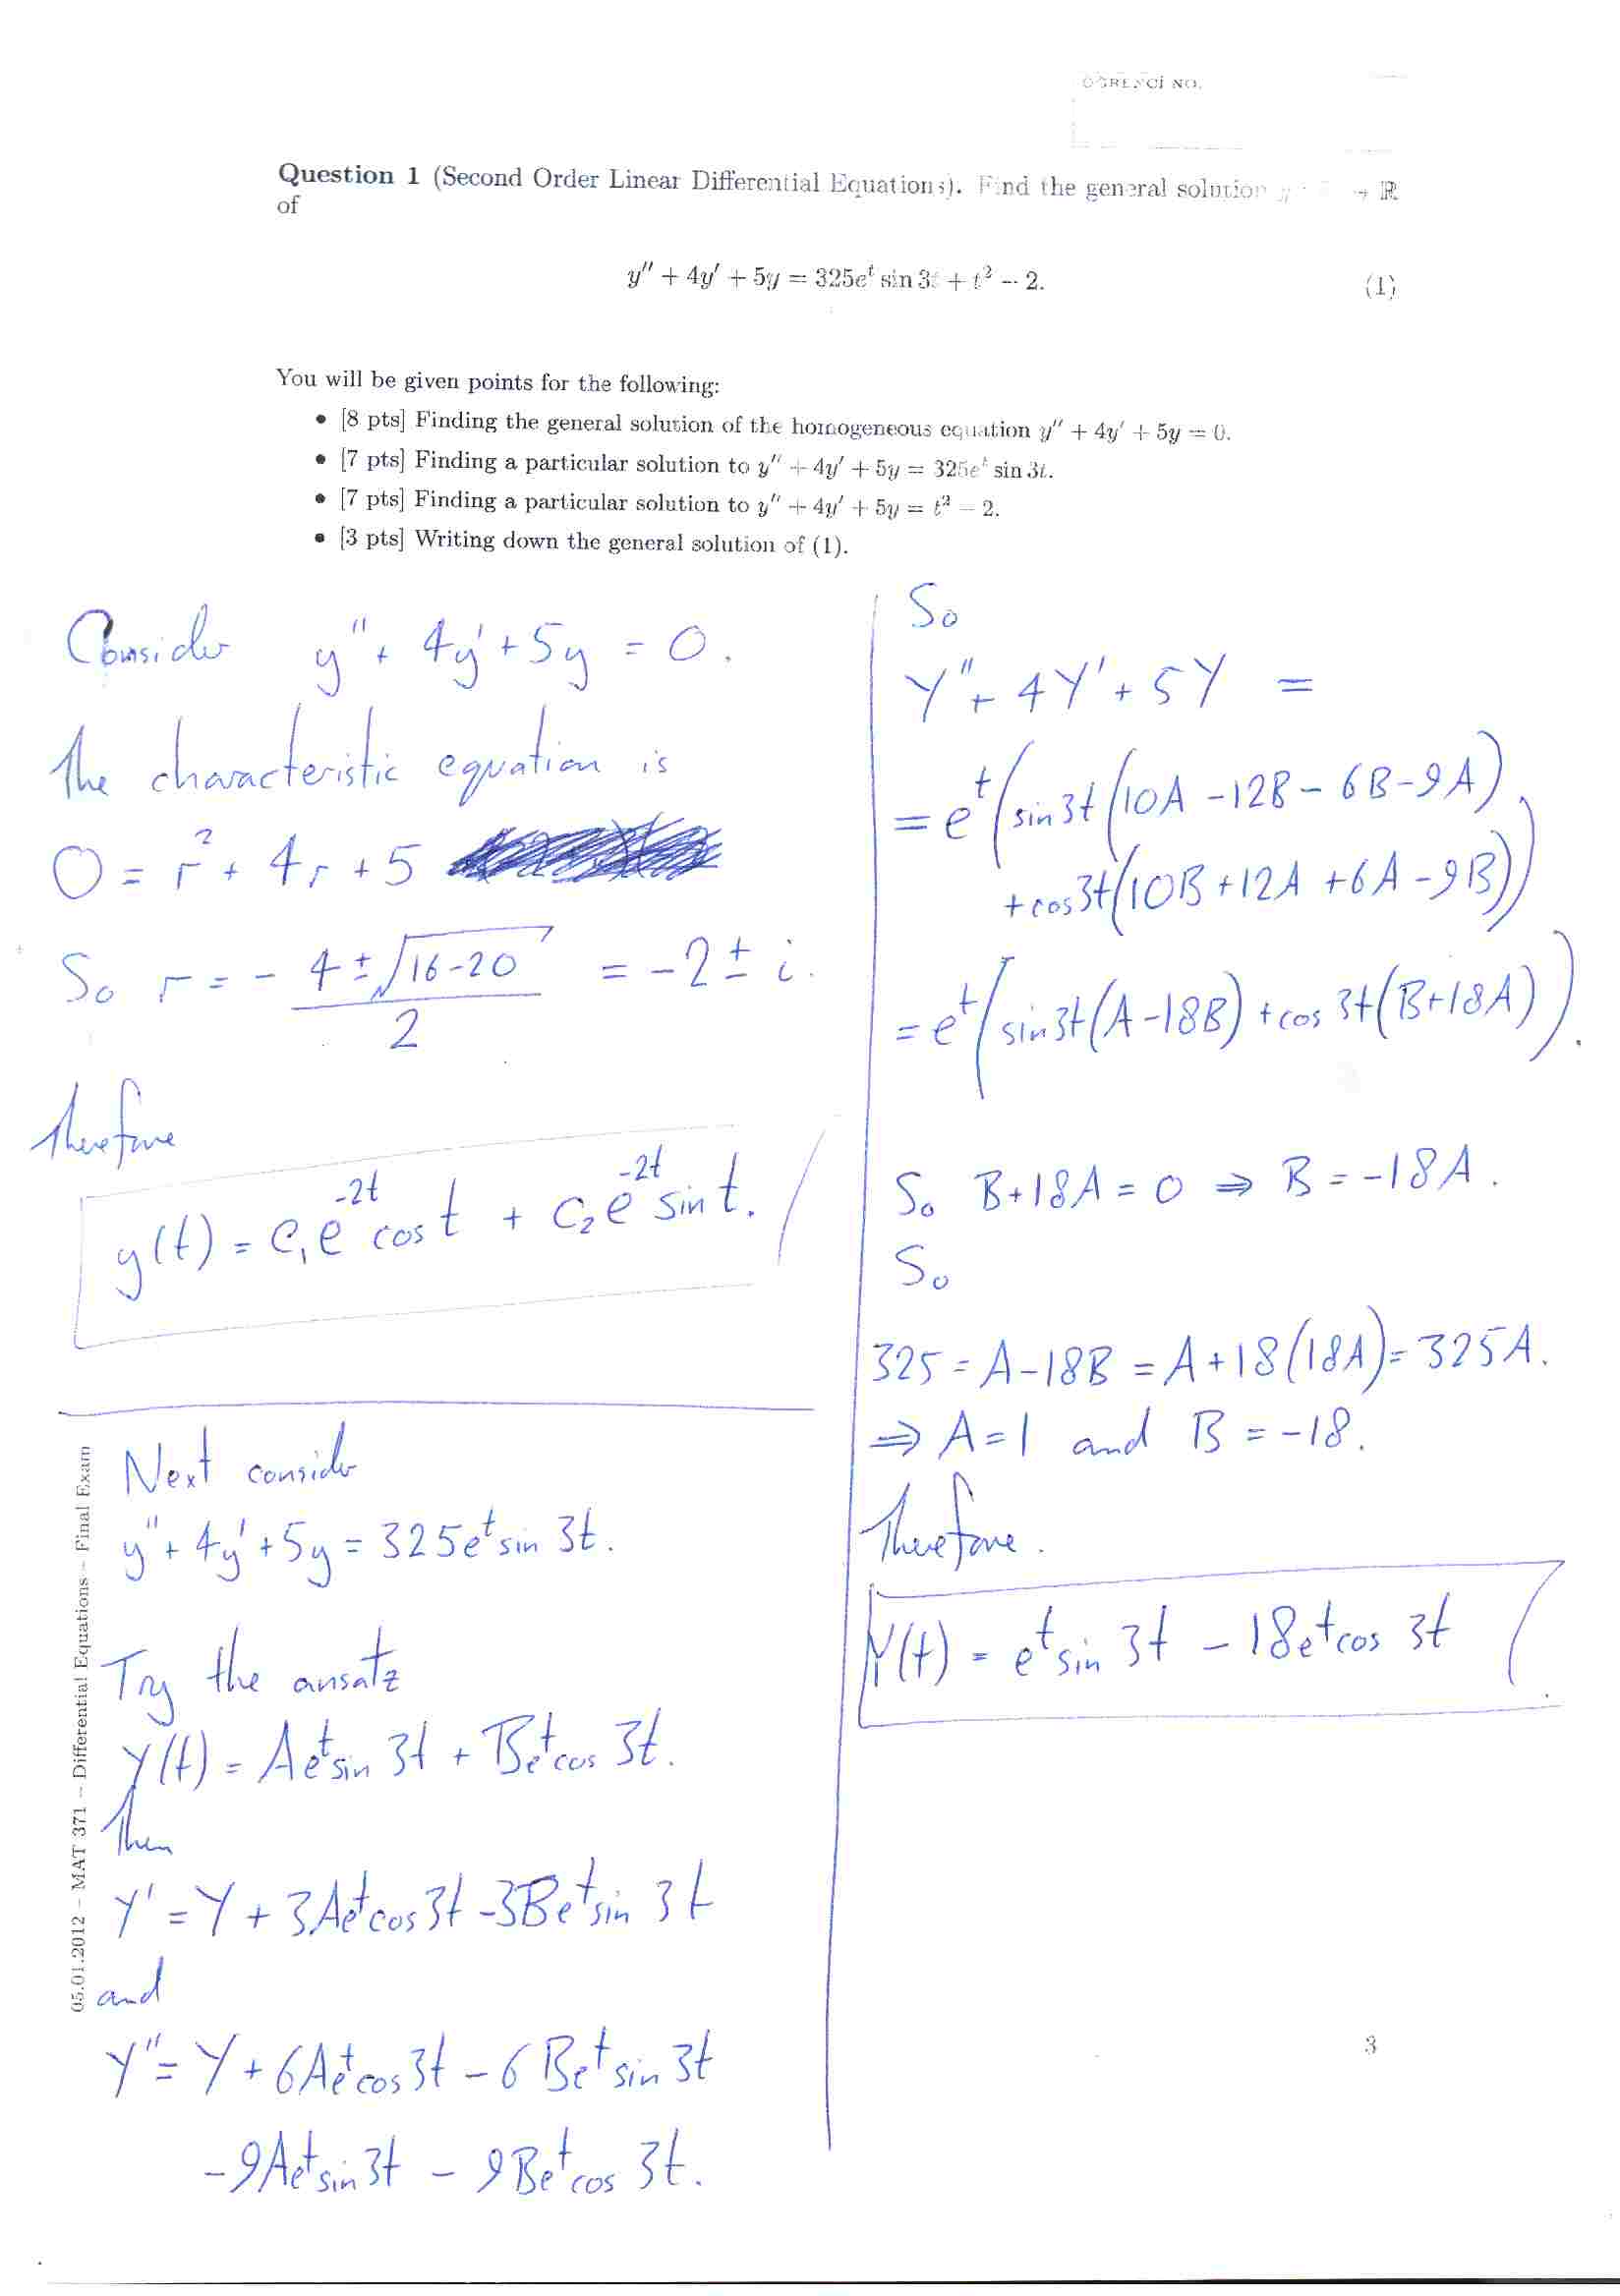 ÖĞRENCİ NO.
Question 1 (Second Order Linear Differential Equations). Find the general solution → ℝ
of
y'' + 4y' + 5y = 325e^t sin 3t + t² − 2. (1)
You will be given points for the following:
• [8 pts] Finding the general solution of the homogeneous equation y'' + 4y' + 5y = 0.
• [7 pts] Finding a particular solution to y'' + 4y' + 5y = 325e^t sin 3t.
• [7 pts] Finding a particular solution to y'' + 4y' + 5y = t² − 2.
• [3 pts] Writing down the general solution of (1).
Consider y'' + 4y' + 5y = 0.
The characteristic equation is
0 = r² + 4r + 5
So r = - (4 ± √(16-20))/2 = -2 ± i.
Therefore
y(t) = c₁e^{-2t} cos t + c₂e^{-2t} sin t.
Next consider
y'' + 4y' + 5y = 325e^t sin 3t.
Try the ansatz
Y(t) = Ae^t sin 3t + Be^t cos 3t.
Then
Y' = Y + 3Ae^t cos 3t - 3Be^t sin 3t
and
Y'' = Y + 6Ae^t cos 3t - 6Be^t sin 3t
- 9Ae^t sin 3t - 9Be^t cos 3t.
So
Y'' + 4Y' + 5Y =
= e^t (sin 3t (10A - 12B - 6B - 9A)
+ cos 3t (10B + 12A + 6A - 9B))
= e^t (sin 3t (A - 18B) + cos 3t (B + 18A)).
So B + 18A = 0 ⇒ B = -18A.
So
325 = A - 18B = A + 18(18A) = 325A.
⇒ A = 1 and B = -18.
Therefore.
Y(t) = e^t sin 3t - 18e^t cos 3t.
05.01.2012 – MAT 371 – Differential Equations – Final Exam
3